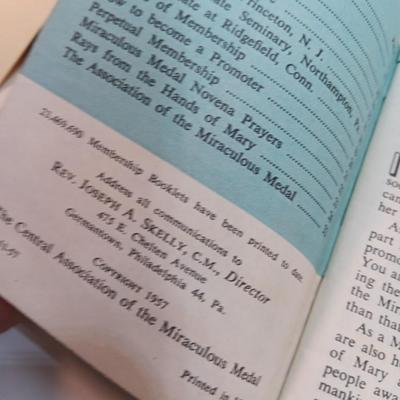 Princeton, N. J.
ate Seminary, Northampton, Pa.
ate at Ridgefield, Conn.
of Membership
ow to become a Promoter
Perpetual Membership
Miraculous Medal Novena Prayers
Rays from the Hands of Mary
The Association of the Miraculous Medal
Membership Booklets have been printed to date
Address all communications to
REV. JOSEPH A. SKELLY, C.M., Director
475 E. Chelten Avenue
Germantown, Philadelphia 44, Pa.
COPYRIGHT 1957
The Central Association of the Miraculous Medal
Printed in
soc
can
her
part
promo
You ar
ing the
the Mir
than that
As a M
are also h
of Mary a
people awa
manki